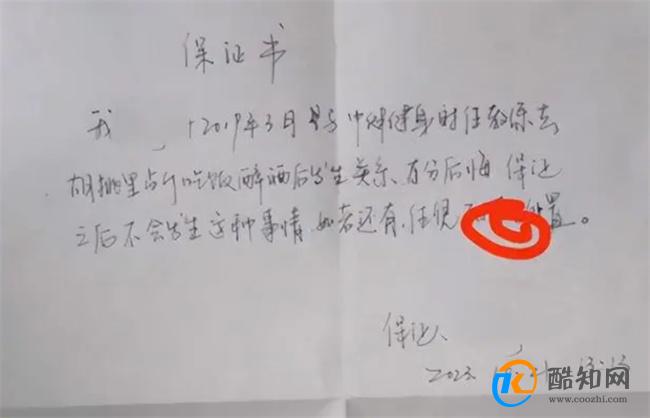 保证书
我 于2019年3月 与 中 健身时任教练去
胡桃里 吃饭醉酒后发生关系、百分后悔 保证
之后不会发生这种事情 如若还有、任凭 处置。
保证人
2023
酷知网
www.coozhi.com